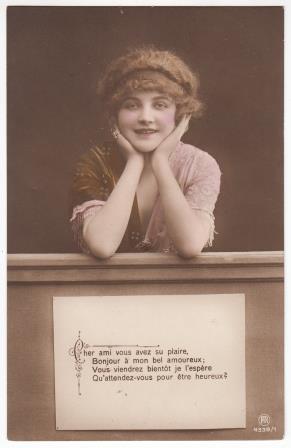 Cher ami vous avez su plaire,
Bonjour à mon bel amoureux;
Vous viendrez bientôt je l'espère
Qu'attendez-vous pour être heureux?
4339/1